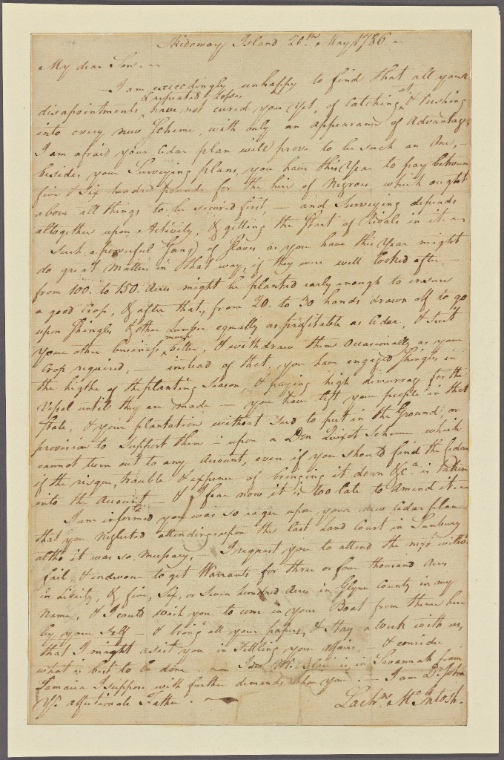 Skidoway Island 20th May 1786 –
My dear Son, –
I am exceedingly unhappy to find that all your
repeated Losses
disappointments have not cured you (yet, of Catching at & Pushing
into every new Scheme, with only an appearance of Advantage
I am afraid your Cedar plan will prove to be such an One, –
besides, your Surveying plans, you have this Year to pay between
five & Six hundred pounds for the hire of Negroes, which ought
above all things to be secured first – and Surveying depends
altogether upon Activity, & getting the Start of Rivals in it. –
Such a powerful Gang of Slaves as you have this Year might
do great Matters in that way, if they were well looked after, –
from 100 to 150 Acres might be planted early enough to ensure
a good Crop, & after that, from 20 to 30 hands drawn off to go
upon Shingles & other Lumber equally as profitable as Cedar, & suit
your other business much better, & withdraw them Occasionally as your
Crop required, – instead of that, you have engaged Shingles in
the highth of the planting Season & paying high demurrage for the
Vessel until they are made – you have left your people in that
State, & your plantation without Seed to put in the Ground, or
provision to Support them is upon a Don Quixot Scheme which
cannot turn out to any Account, even if you should find the Cedar
if the risque, trouble & expence of bringing it down &Ca is taken
into the Account – & I fear now it is too late to Amend it –
I am informed you was so eager upon your new Cedar plan
that you neglected attending upon the last Land Court in Sunbury
altho it was so necessary, – I request you to attend the next without
fail, & endeavor to get Warrants for three or four thousand Acres
in Liberty, & five, Six, or Seven hundred Acres in Glynn County in my
Name, & I could wish you to come in your Boat from thence here
by your Self – & bring all your papers, & Stay a Week with us,
that I might assist you in Settling your affairs, & consider
what is best to be done – is in Savannah from
Jamaica I suppose with further demands upon you. – I am Dr John
Yr. affectionate Father. –
Lachn McIntosh.